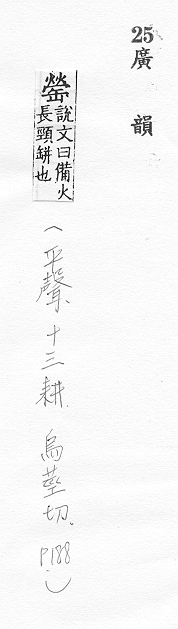 25
廣韻
罃
說文曰備火
長頸缾也
(平聲十三耕.烏莖切.P188.)